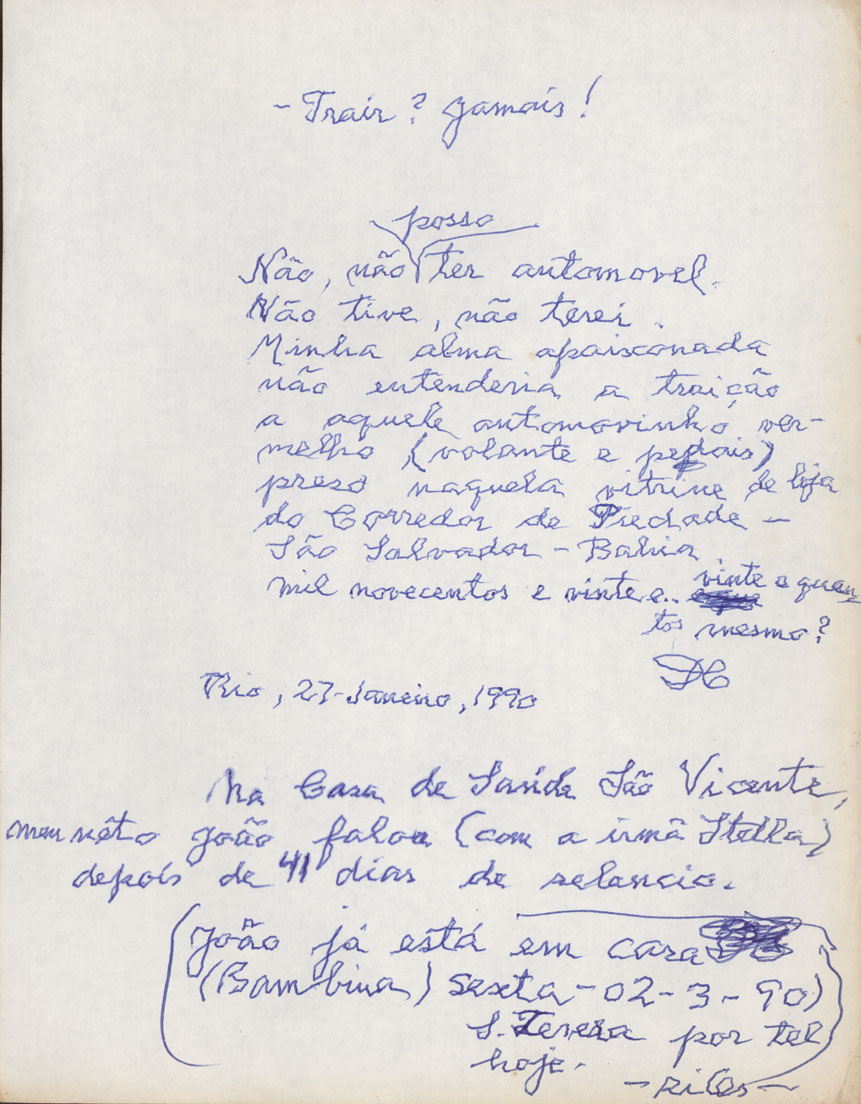 - Trair? Jamais!
posso
Não, não ter automovel.
Não tive, não terei.
Minha alma apaixonada
não entenderia a traição
a aquele automovinho ver-
melho (volante e pedais)
preso naquela vitrine de loja
do Corredor de Piedade -
São Salvador - Bahia
mil novecentos e vinte e.. vinte e quan-
tos mesmo?
Rio, 27-Janeiro, 1990
Na Casa de Saúde São Vicente,
meu néto João falou (com a irmã Stella)
depois de 41 dias de selancio.
(João já está em casa
(Bambina) sexta - 02-3-90)
S. Teresa por tel
hoje.